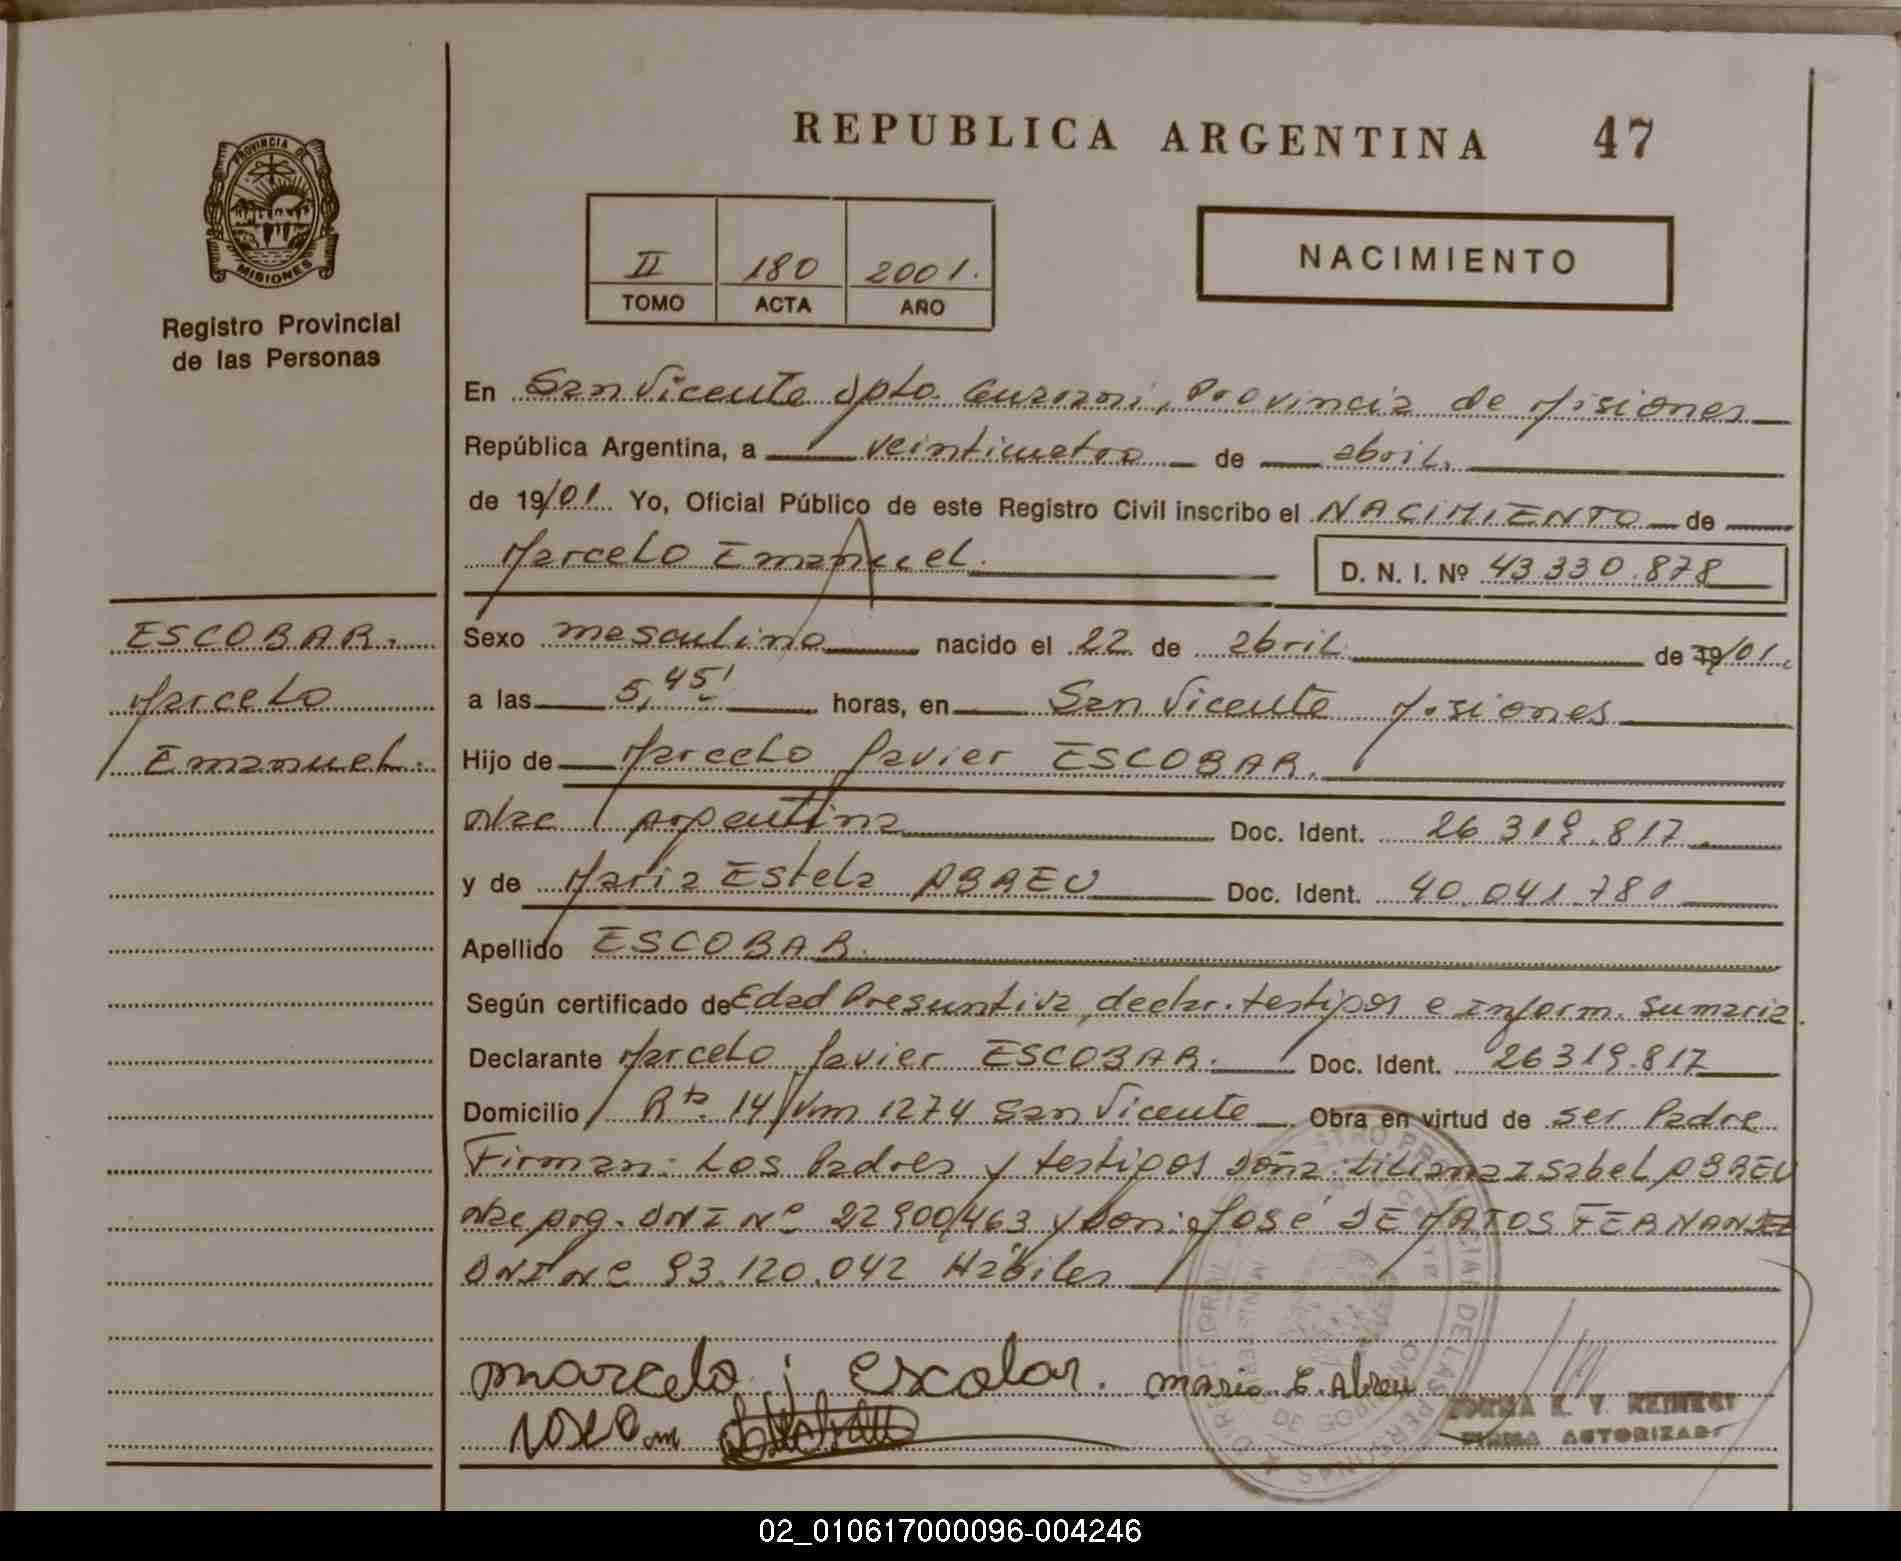 REPUBLICA ARGENTINA 47
PROVINCIA DE
MISIONES
Registro Provincial
de las Personas
II 180 2001.
TOMO ACTA AÑO
NACIMIENTO
En San Vicente Dpto. Guarani, Provincia de Misiones
República Argentina, a veinticuatro de abril.
de 19/01. Yo, Oficial Público de este Registro Civil inscribo el NACIMIENTO de
Marcelo Emanuel.
D. N. I. Nº 43330.878
ESCOBAR.
Marcelo
Emanuel.
Sexo masculino nacido el 22 de abril de 19/01.
a las 5,45' horas, en San Vicente Misiones
Hijo de Marcelo Javier ESCOBAR.
Nac Argentina Doc. Ident. 26.319.817
y de Maria Estela ABREU Doc. Ident. 40.041.780
Apellido ESCOBAR.
Según certificado de Edad Presuntiva, declar. testigos e Inform. Sumaria.
Declarante Marcelo Javier ESCOBAR. Doc. Ident. 26319.817
Domicilio Rta. 14 Km 1274 San Vicente Obra en virtud de ser Padre
Firman: Los Padres y testigos Doña: Liliana Isabel ABREU
Nac Arg. DNI Nº 22900463 y Don: José DE MATOS FERNANDEZ
DNI Nº 93.120.042 Hábiles
marcelo j escobar. maria E. Abreu
K. Y. REINERT
FIRMA AUTORIZADA
02_010617000096-004246